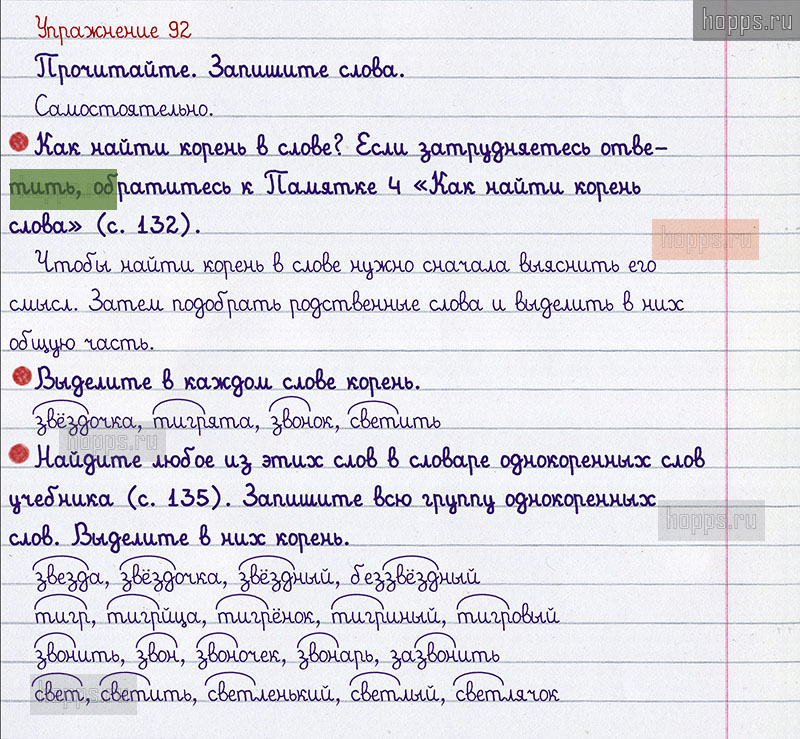 hopps.ru
Упражнение 92
Прочитайте. Запишите слова.
Самостоятельно.
Как найти корень в слове? Если затрудняетесь отве-
тить, обратитесь к Памятке 4 «Как найти корень
слова» (с. 132).
hopps.ru
Чтобы найти корень в слове нужно сначала выяснить его
смысл. Затем подобрать родственные слова и выделить в них
общую часть.
Выделите в каждом слове корень.
звёздочка, тигрята, звонок, светить
hopps.ru
Найдите любое из этих слов в словаре однокоренных слов
учебника (с. 135). Запишите всю группу однокоренных
hopps.ru
слов. Выделите в них корень.
звезда, звёздочка, звёздный, беззвёздный
тигр, тигрица, тигрёнок, тигриный, тигровый
звонить, звон, звоночек, звонарь, зазвонить
свет, светить, светленький, светлый, светлячок
hopps.ru